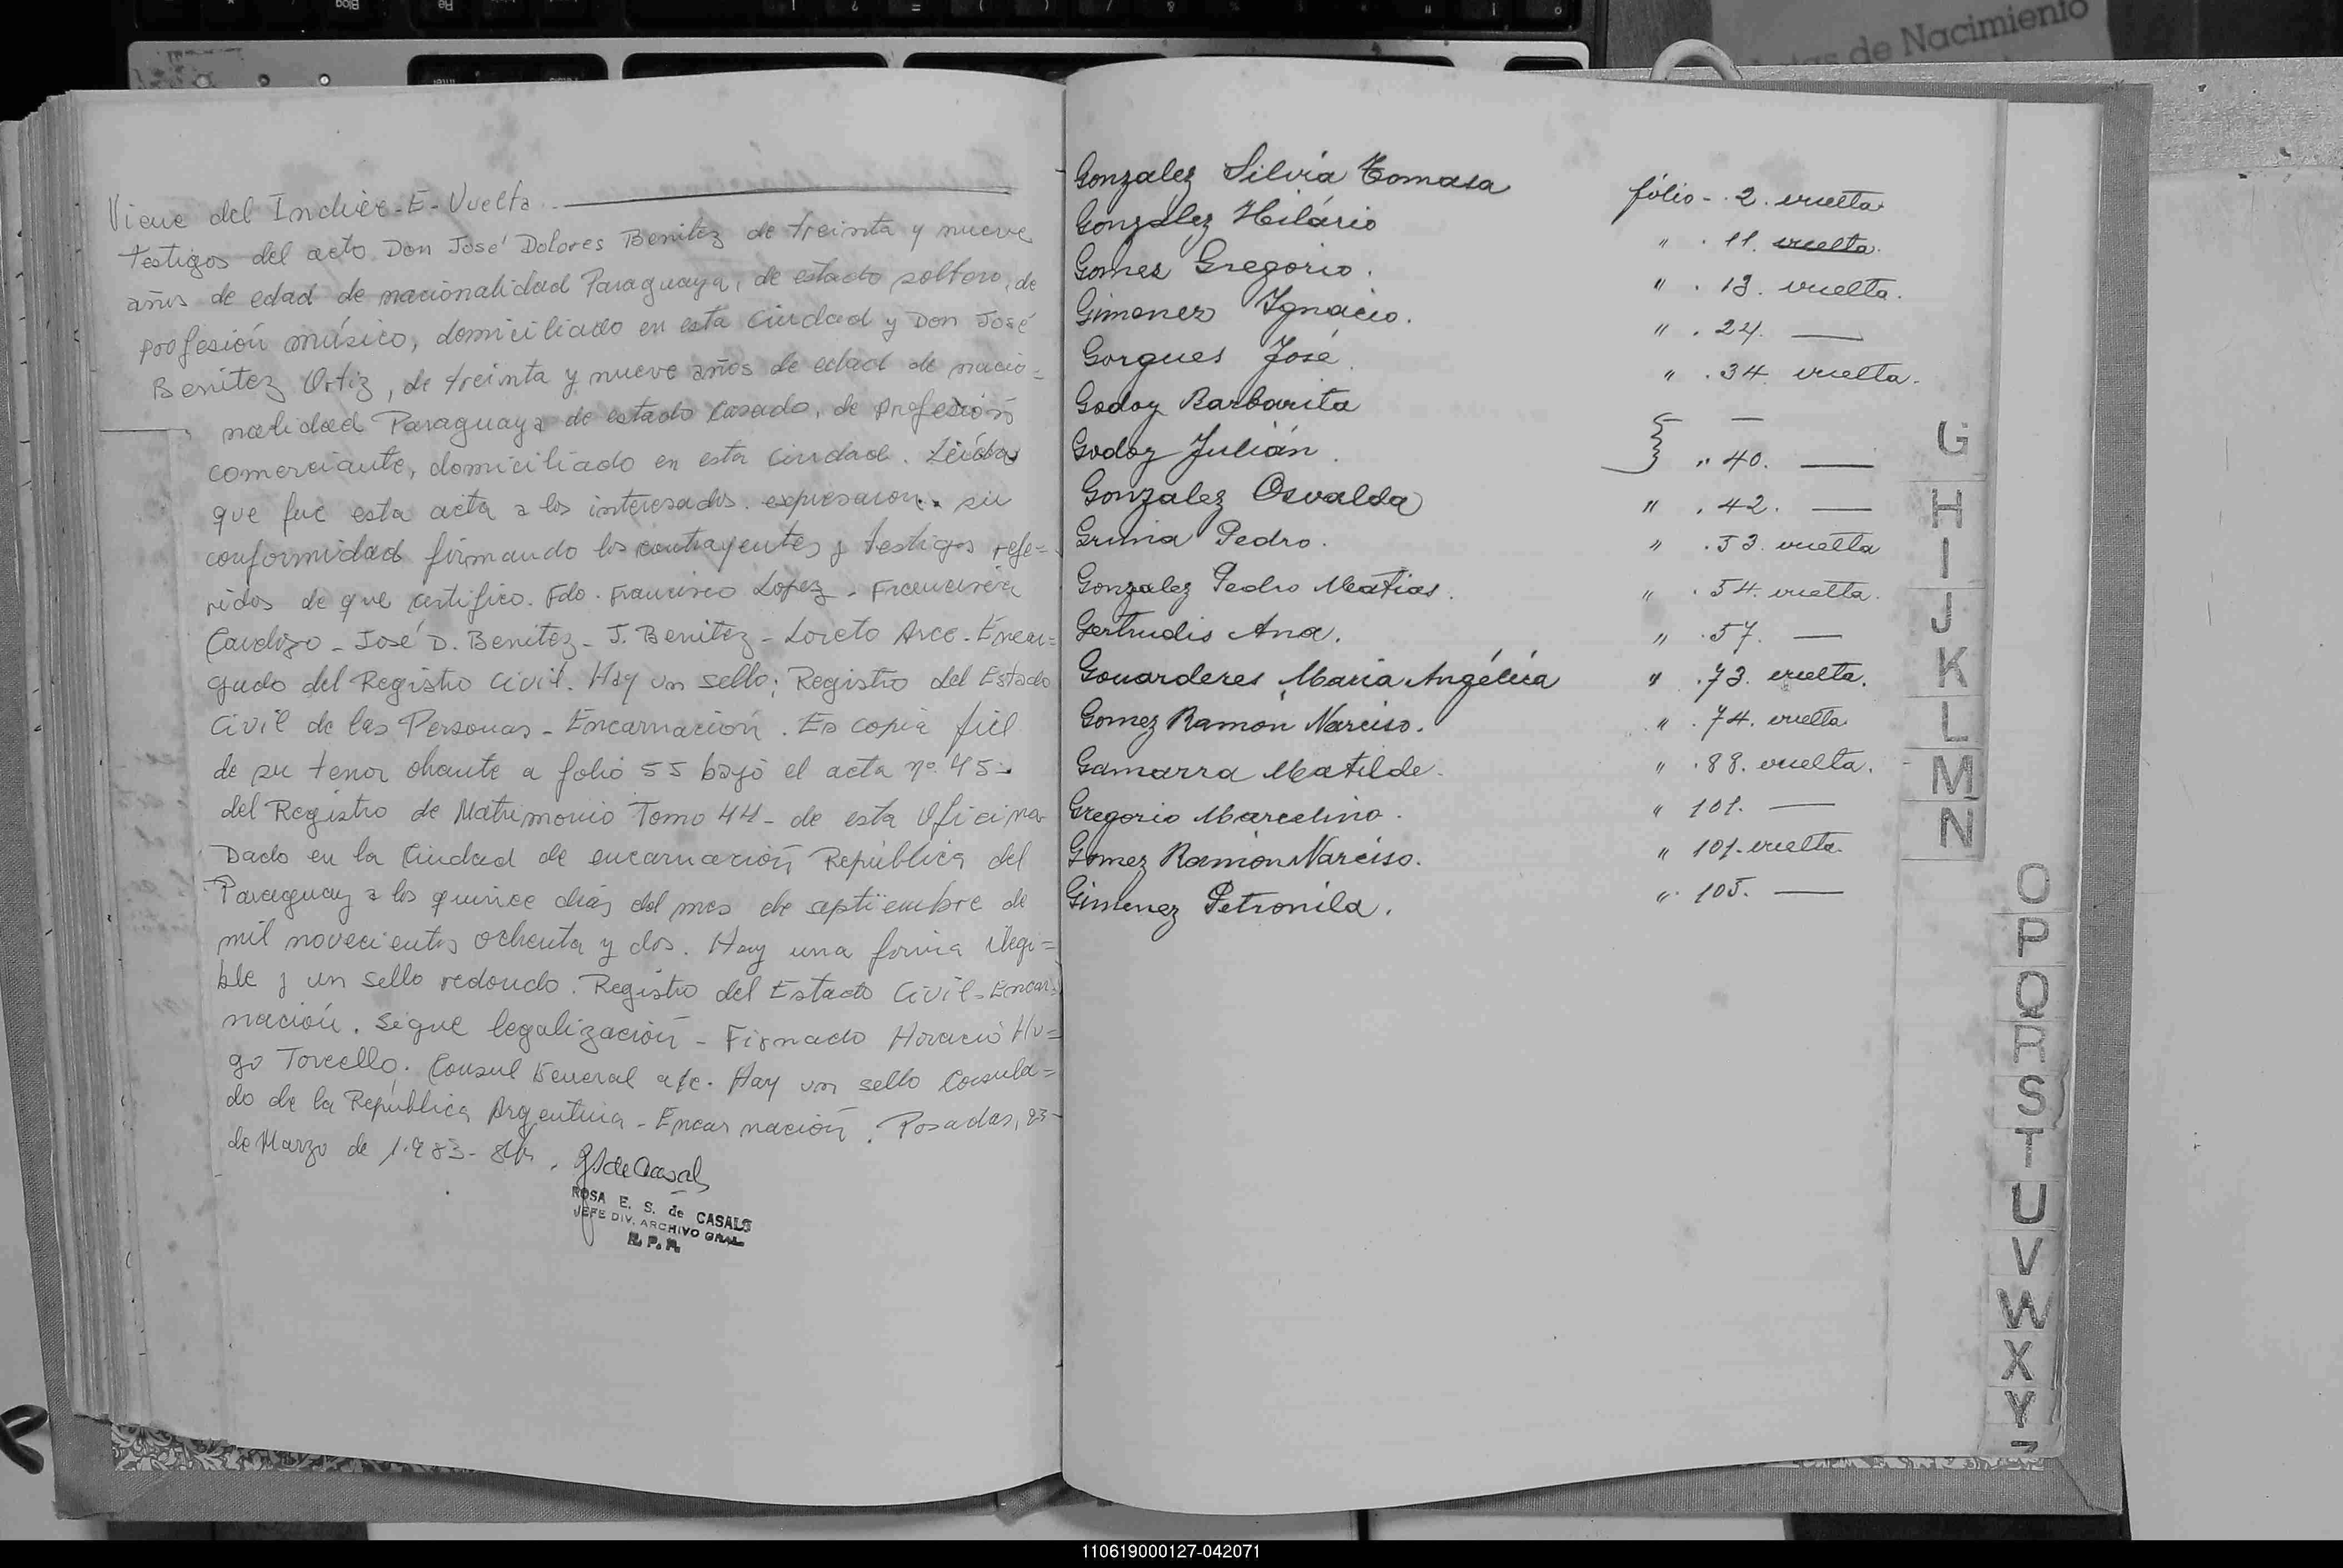 de Nacimiento
Viene del Indice-E-Vuelta
testigos del acto Don José Dolores Benitez de treinta y nueve
años de edad de nacionalidad Paraguaya, de estado soltero, de
profesión músico, domiciliado en esta Ciudad y Don José
Benítez Ortiz, de treinta y nueve años de edad de nacio=
nalidad Paraguaya de estado Casado, de Profesión
comerciante, domiciliado en esta Ciudad. Leída
que fue esta acta a los interesados. expresaron su
conformidad firmando los contrayentes y testigos refe=
ridos de que certifico. Fdo. Francisco Lopez - Francisca
Cardozo - José D. Benitez - J. Benitez - Loreto Arce - Encar=
gado del Registro Civil. Hay un sello; Registro del Estado
Civil de las Personas - Encarnación. Es copia fiel
de su tenor obrante a folio 55 bajo el acta nº 45-
del Registro de Matrimonio Tomo 44 - de esta Oficina
Dado en la Ciudad de encarnación República del
Paraguay a los quince días del mes de septiembre de
mil novecientos ochenta y dos. Hay una firma ilegi=
ble y un sello redondo. Registro del Estado Civil - Encar
nación. Sigue legalización - Firmado Horacio Hu=
go Torcello. Consul General a/c. Hay un sello Consula=
do de la República Argentina - Encarnación. Posadas, 23-
de Marzo de 1.983-
ROSA E. S. de CASALS
JEFE DIV. ARCHIVO GRAL
R. P. P.
Gonzalez Silvia Tomasa fólio - 2. vuelta
Gonzalez Hilário " . 11. vuelta.
Gomez Gregorio. " . 13. vuelta.
Gimenez Ignacio. " . 24. —
Gorgues José. " . 34. vuelta.
Godoy Barbarita —
Godoy Julián. } " 40. —
Gonzalez Osvalda " . 42. —
Grunia Pedro. " . 53. vuelta
Gonzalez Pedro Matias. " . 54. vuelta.
Gertrudis Ana. " . 57. —
Gouarderes Maria Angélica " . 73. vuelta.
Gomez Ramón Narciso. " . 74. vuelta
Gamarra Matilde. " . 88. vuelta.
Gregorio Marcelino. " 101. —
Gomez Ramón Narciso. " 101. vuelta.
Gimenez Petronila. " 105. —
G
H
I
J
K
L
M
N
O
P
Q
R
S
T
U
V
W
X
Y
Z
110619000127-042071